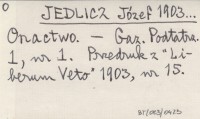 O
JEDLICZ Józef 1903...
Oractwo. — Gaz. Podtatra.
1, nr 1. Przedruk z "Li-
berum Veto" 1903, nr 15.